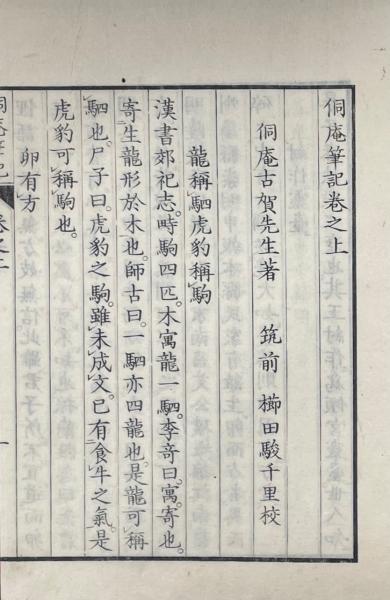 侗庵筆記卷之上
侗庵古賀先生著 筑前 櫛田駿千里校
龍稱駟虎豹稱駒
漢書郊祀志。時駒四匹。木寓龍一駟。李奇曰。寓。寄也。
寄生龍形於木也。師古曰。一駟亦四龍也。是龍可稱
駟也。尸子曰。虎豹之駒。雖未成文。已有食牛之氣。是
虎豹可稱駒也。
卵有方